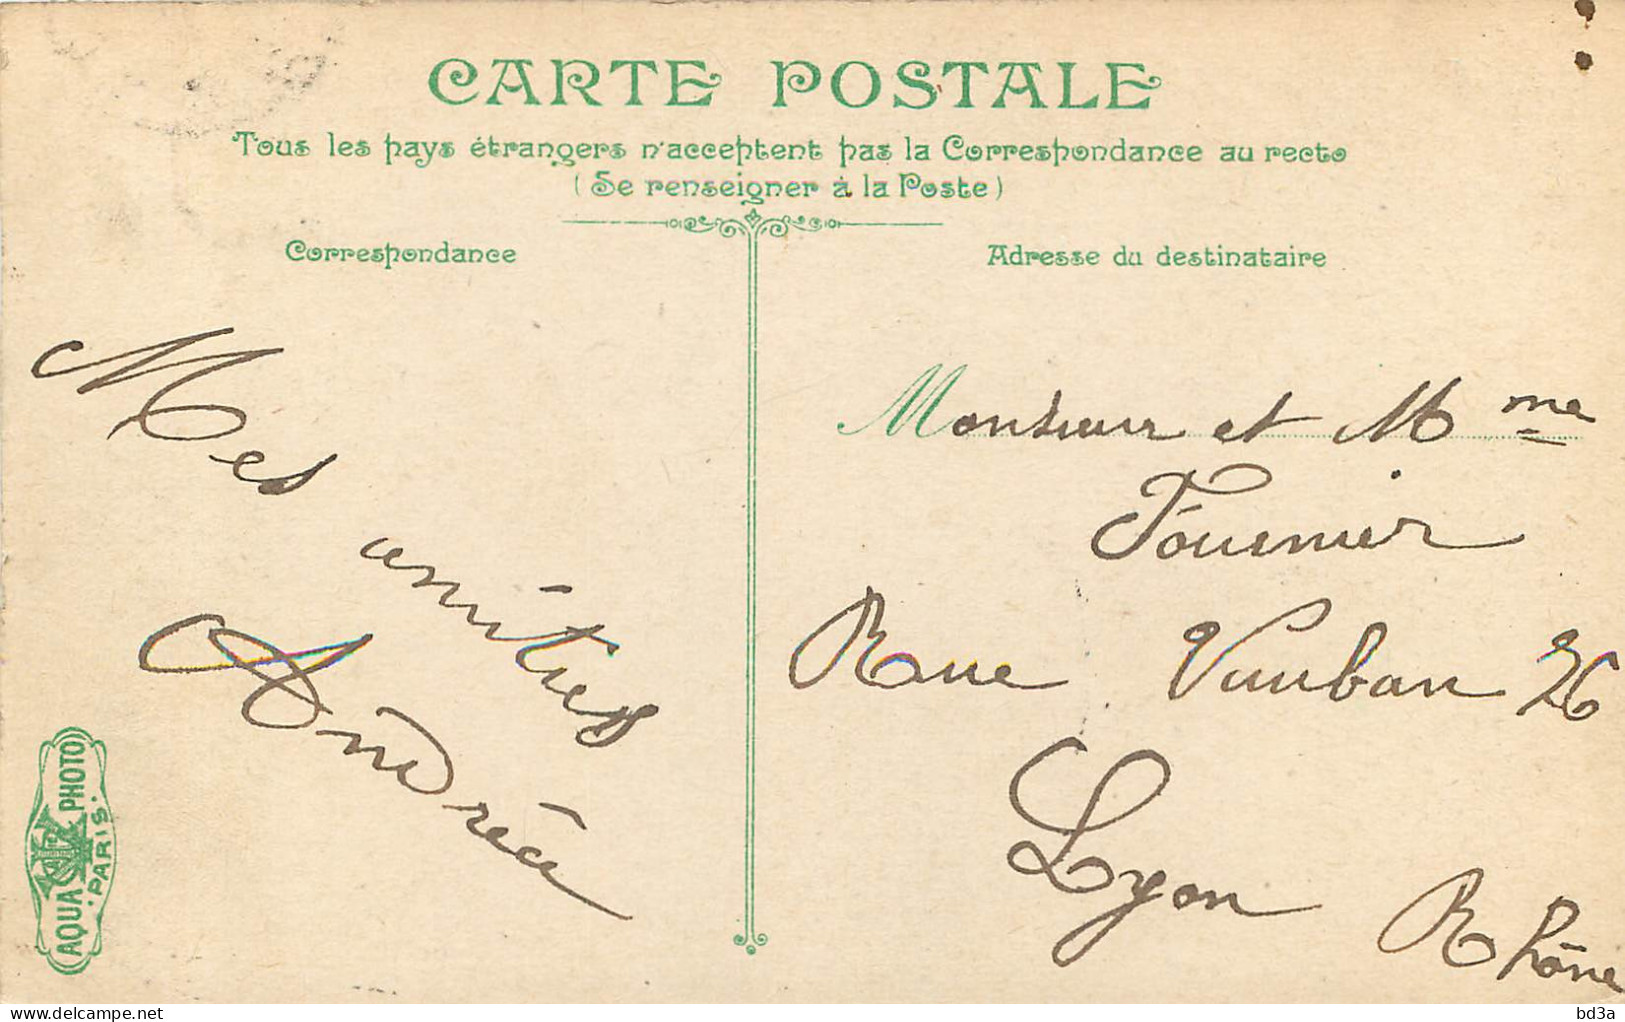 CARTE POSTALE
Tous les pays étrangers n'acceptent pas la Correspondance au recto
(Se renseigner à la Poste)
Correspondance
Adresse du destinataire
Mes
amitiés
Andrée
Monsieur et Mme
Fournier
Rue Vauban 26
Lyon
Rhône
AQUA PHOTO
PARIS.
delcampe.net
bd3a